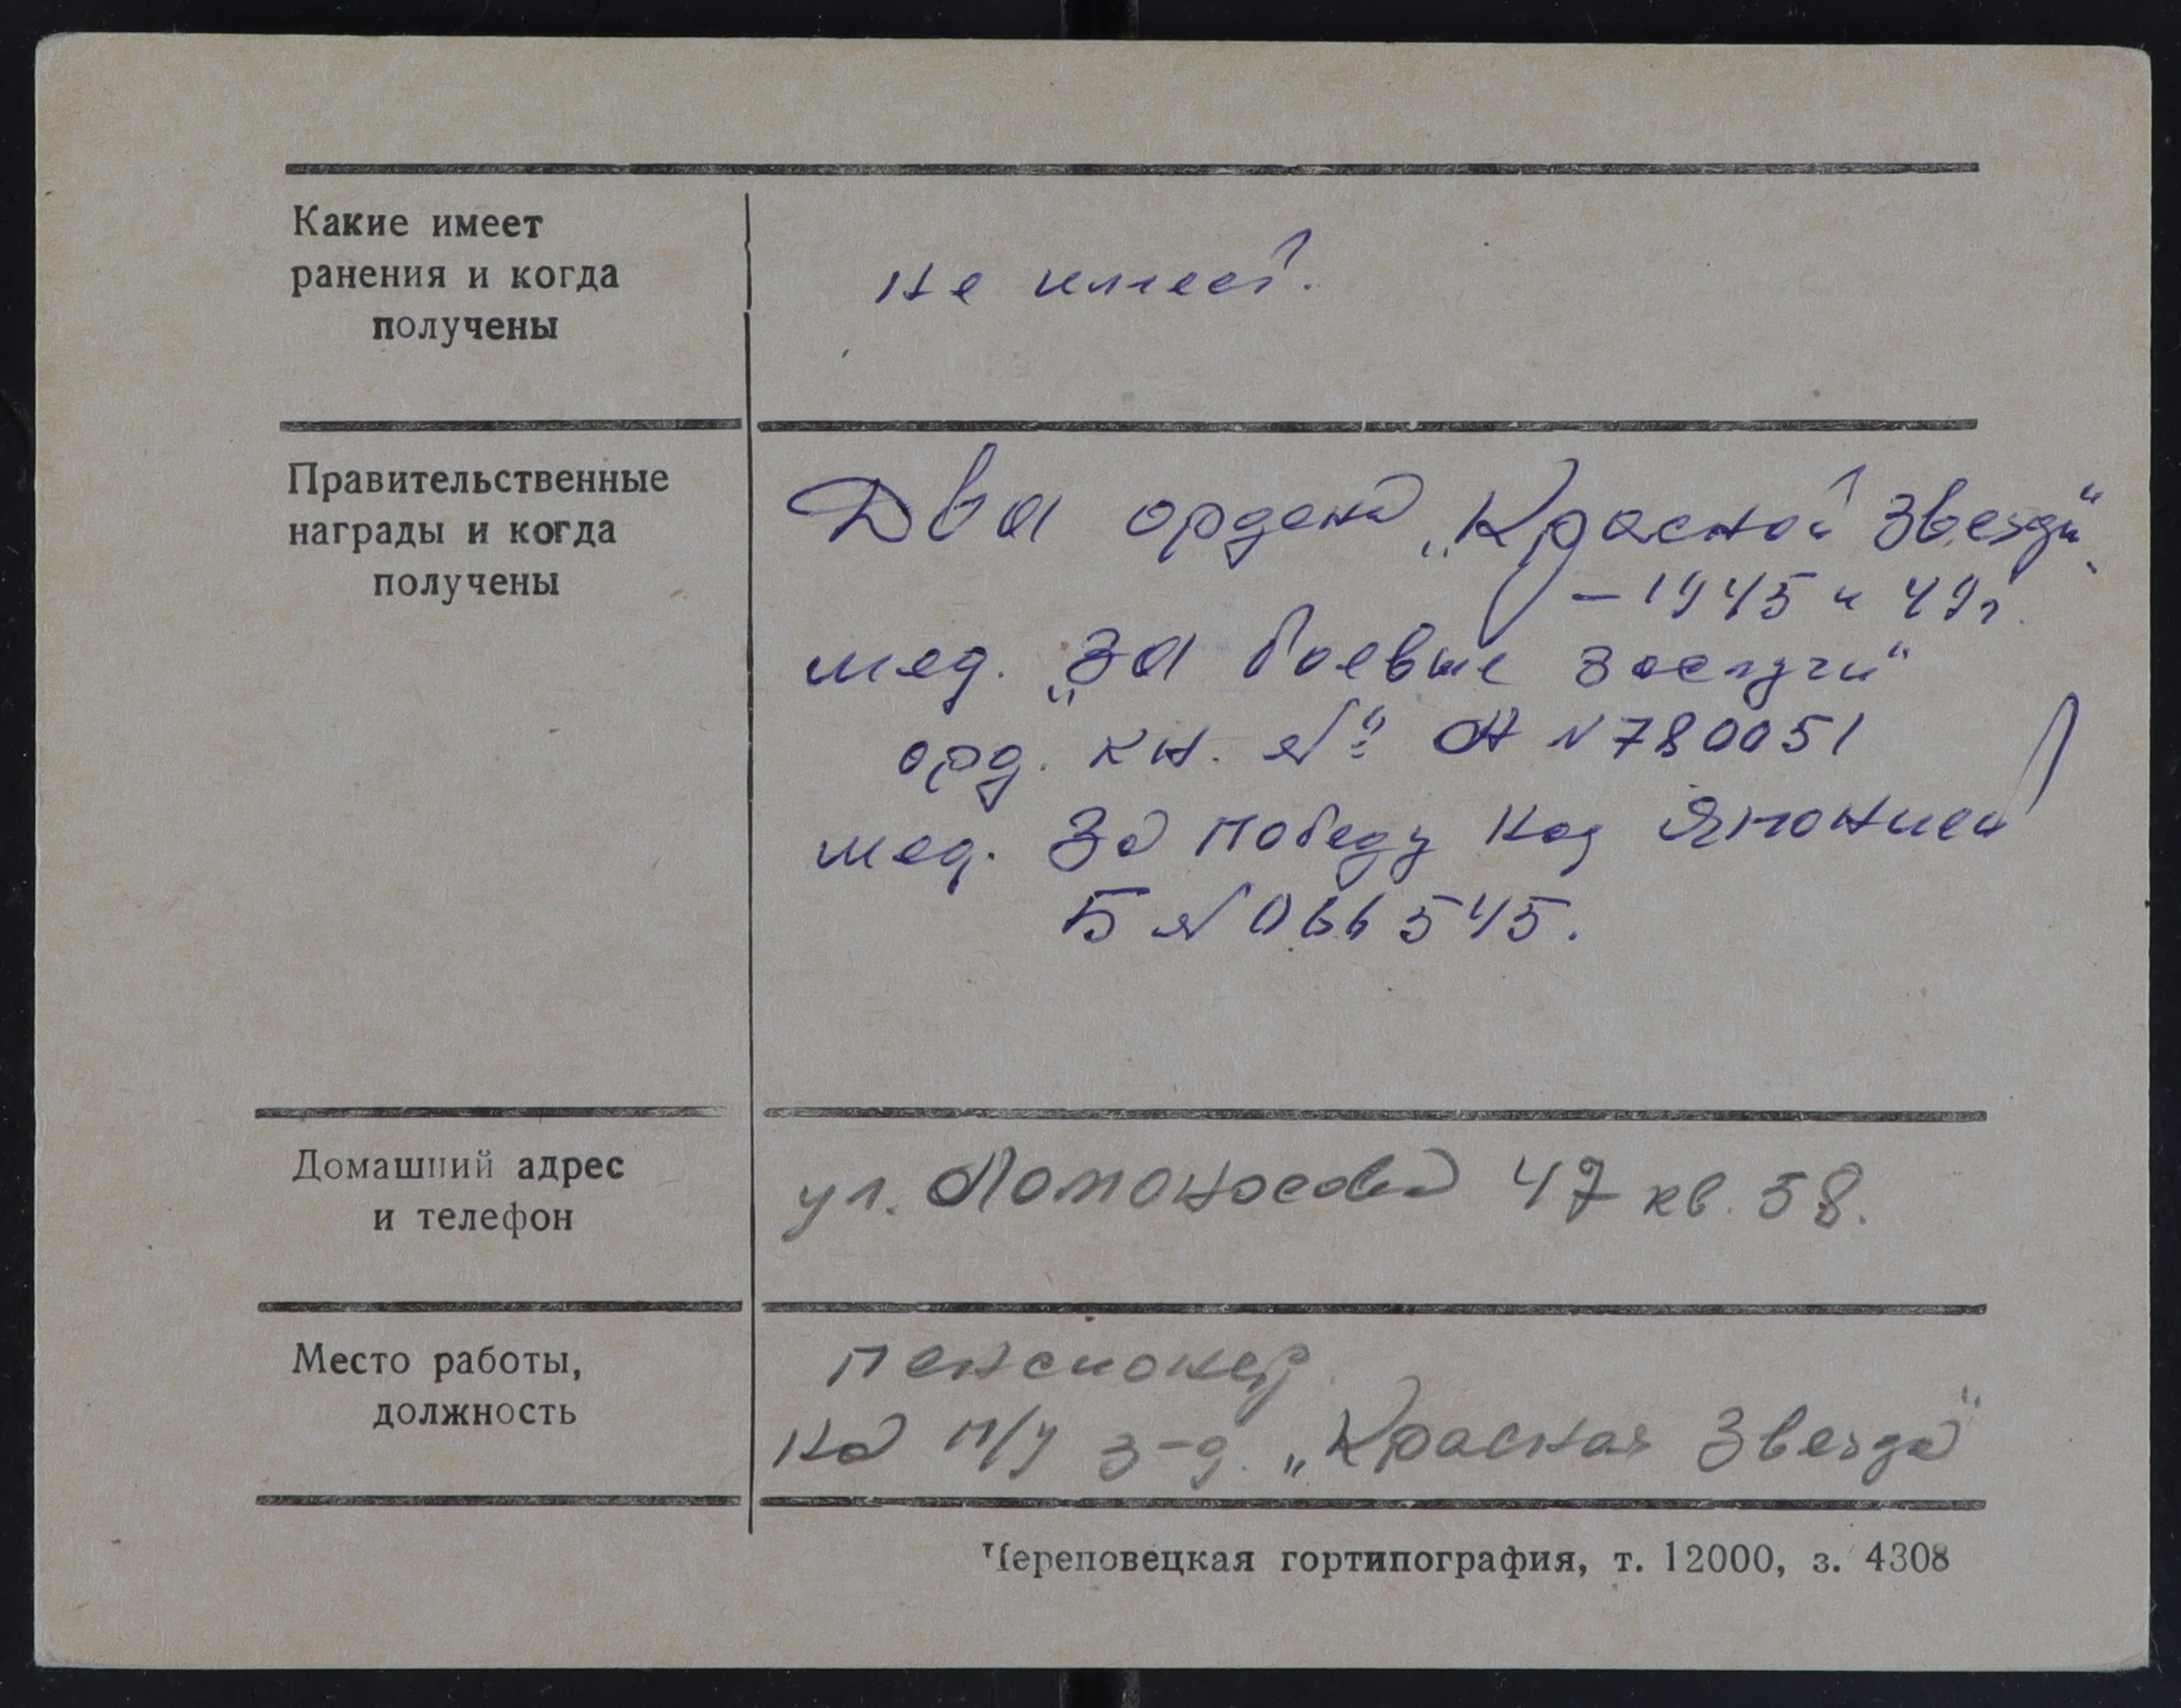 Какие имеет
ранения и когда
получены
не имеет.
Правительственные
награды и когда
получены
Два ордена „Красной Звезды“
— 1945 и 49 г.
мед. „За боевые заслуги“
орд. кн. № А № 780051
мед. За победу над Японией
Б № 066545.
Домашний адрес
и телефон
ул. Ломоносова 47 кв. 58.
Место работы,
должность
пенсионер
на п/у з-д. „Красная Звезда“
Череповецкая гортипография, т. 12000, з. 4308